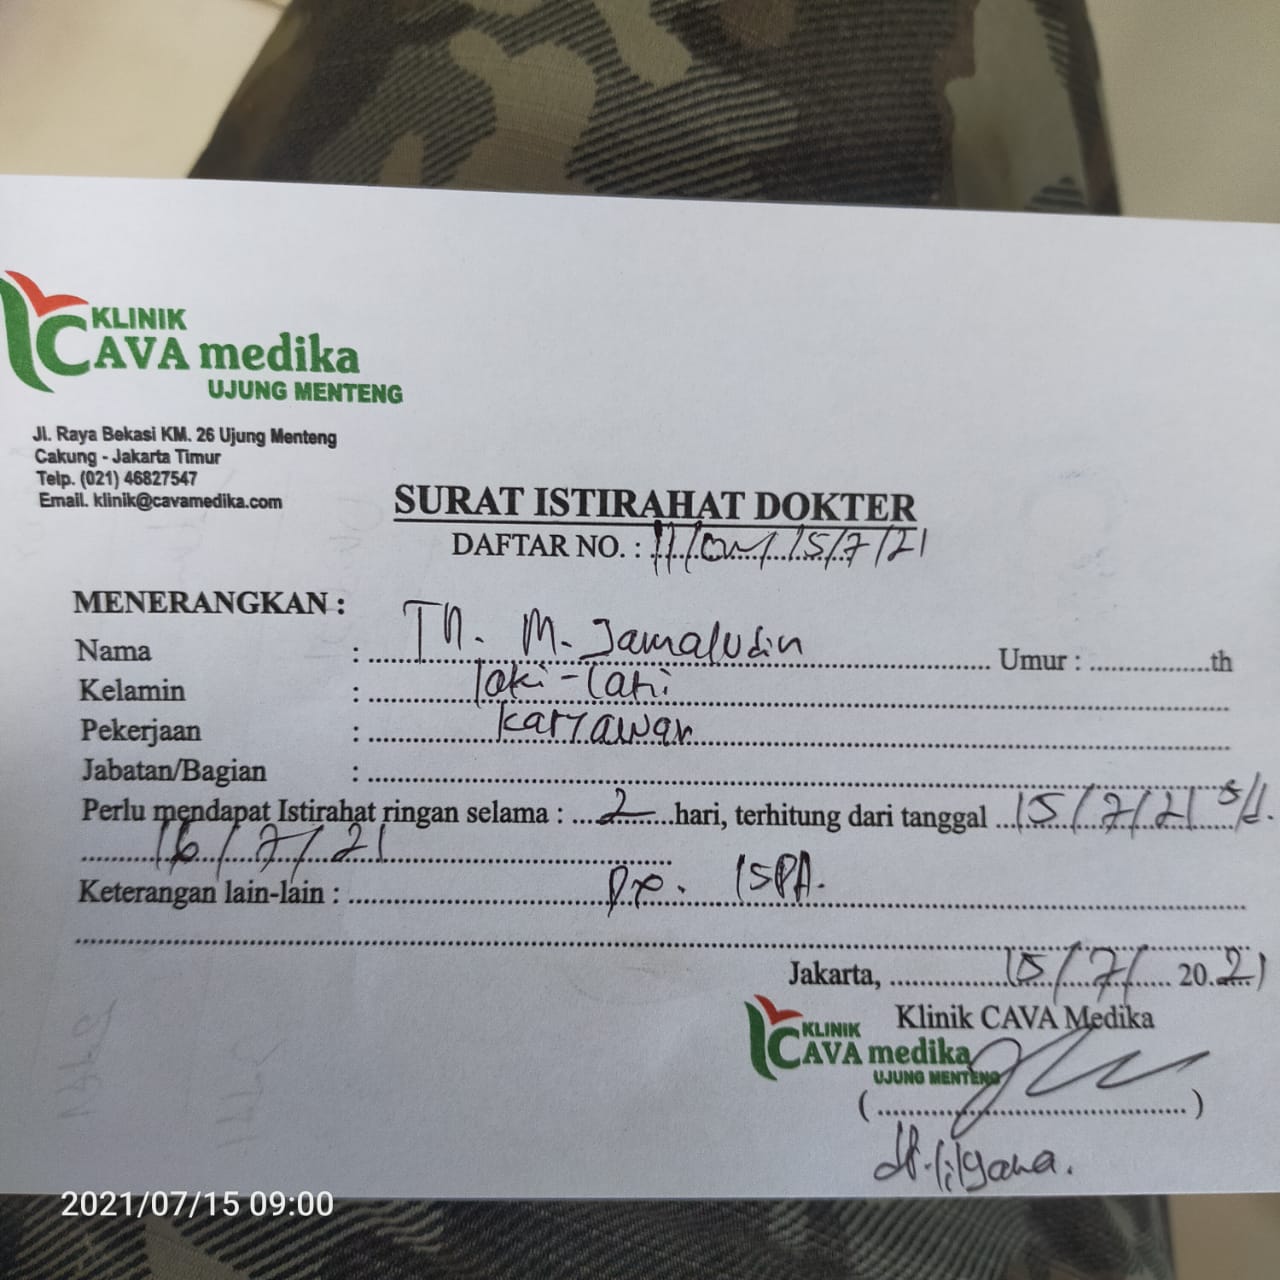 KLINIK
CAVA medika
UJUNG MENTENG
Jl. Raya Bekasi KM. 26 Ujung Menteng
Cakung - Jakarta Timur
Telp. (021) 46827547
Email. klinik@cavamedika.com
SURAT ISTIRAHAT DOKTER
DAFTAR NO. : 15/7/21
MENERANGKAN :
Nama : Tn. M. Jamaludin Umur : ................th
Kelamin : laki-laki
Pekerjaan : karyawan
Jabatan/Bagian :
Perlu mendapat Istirahat ringan selama : 2 hari, terhitung dari tanggal 15/7/21 s/d.
16/7/21
Keterangan lain-lain : Dx. ISPA.
Jakarta, 15/7/ 20.21
Klinik CAVA Medika
KLINIK
CAVA medika
UJUNG MENTENG
(........................................)
2021/07/15 09:00